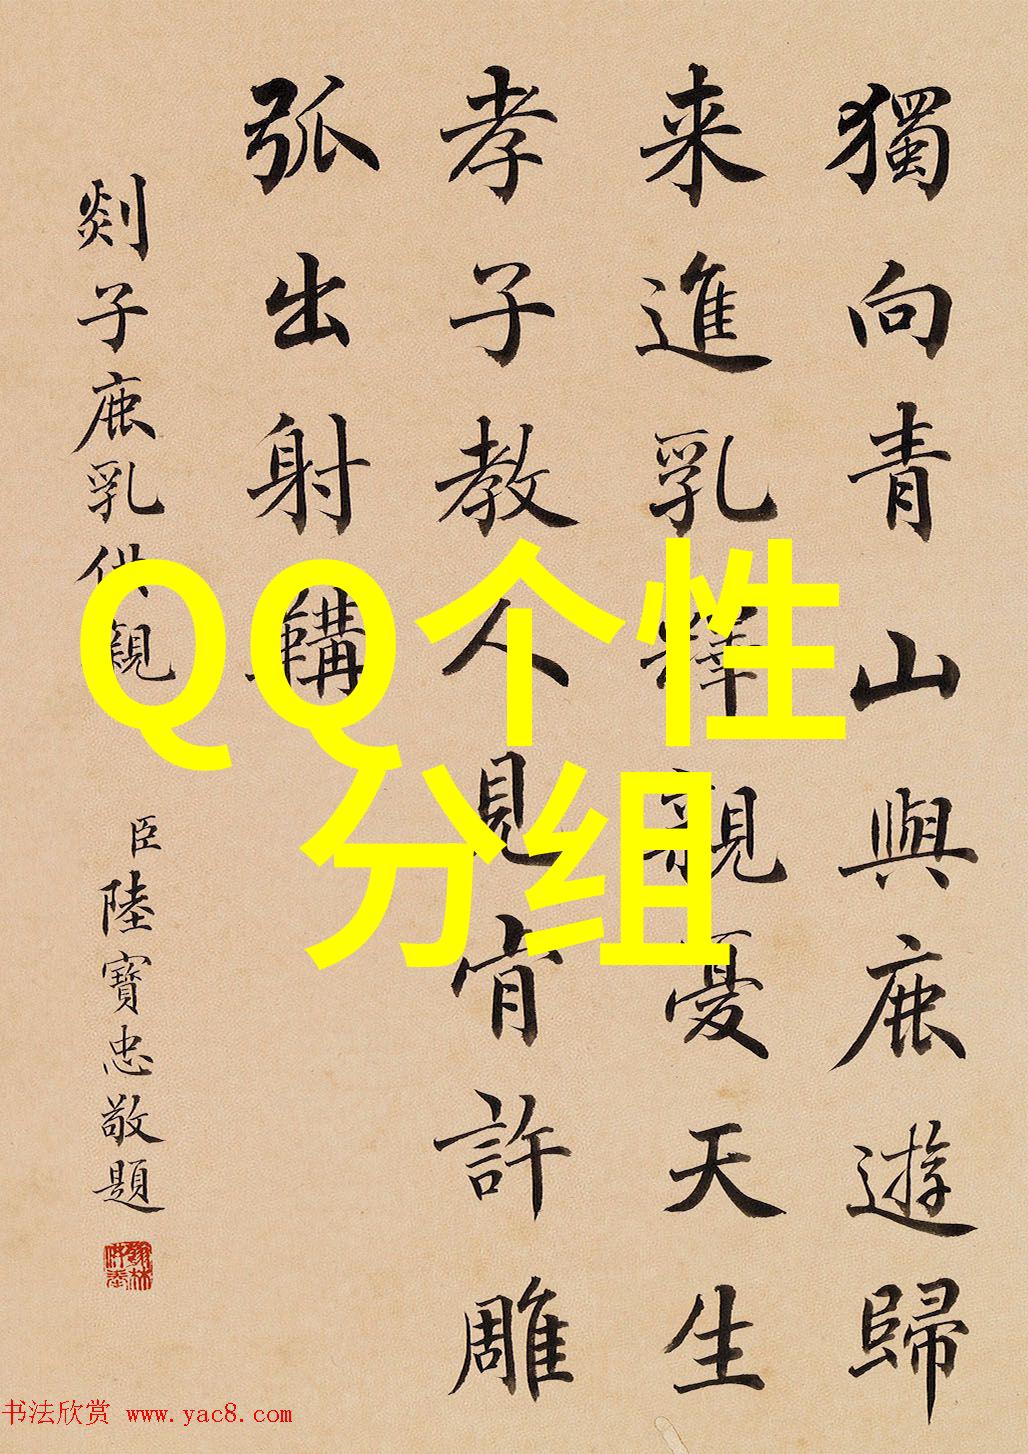 獨向青山與鹿遊歸
来進乳釋親憂天生
孝子教人見肯許雕
弧出射鞲
剡子鹿乳供親
臣陸寶忠敬題
QQ个性
分组
书法欣赏 www.yac8.com